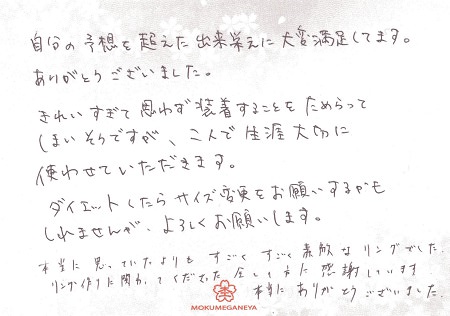 自分の予想を超えた出来栄えに大変満足してます。
ありがとうございました。
きれいすぎて思わず装着することをためらって
しまいそうですが、二人で生涯大切に
使わせていただきます。
ダイエットしたらサイズ変更をお願いするかも
しれませんが、よろしくお願いします。
本当に思っていたよりもすごくすごく素敵なリングでした。
リング作りに関わってくださった全ての方に感謝しています
本当にありがとうございました。
MOKUMEGANEYA